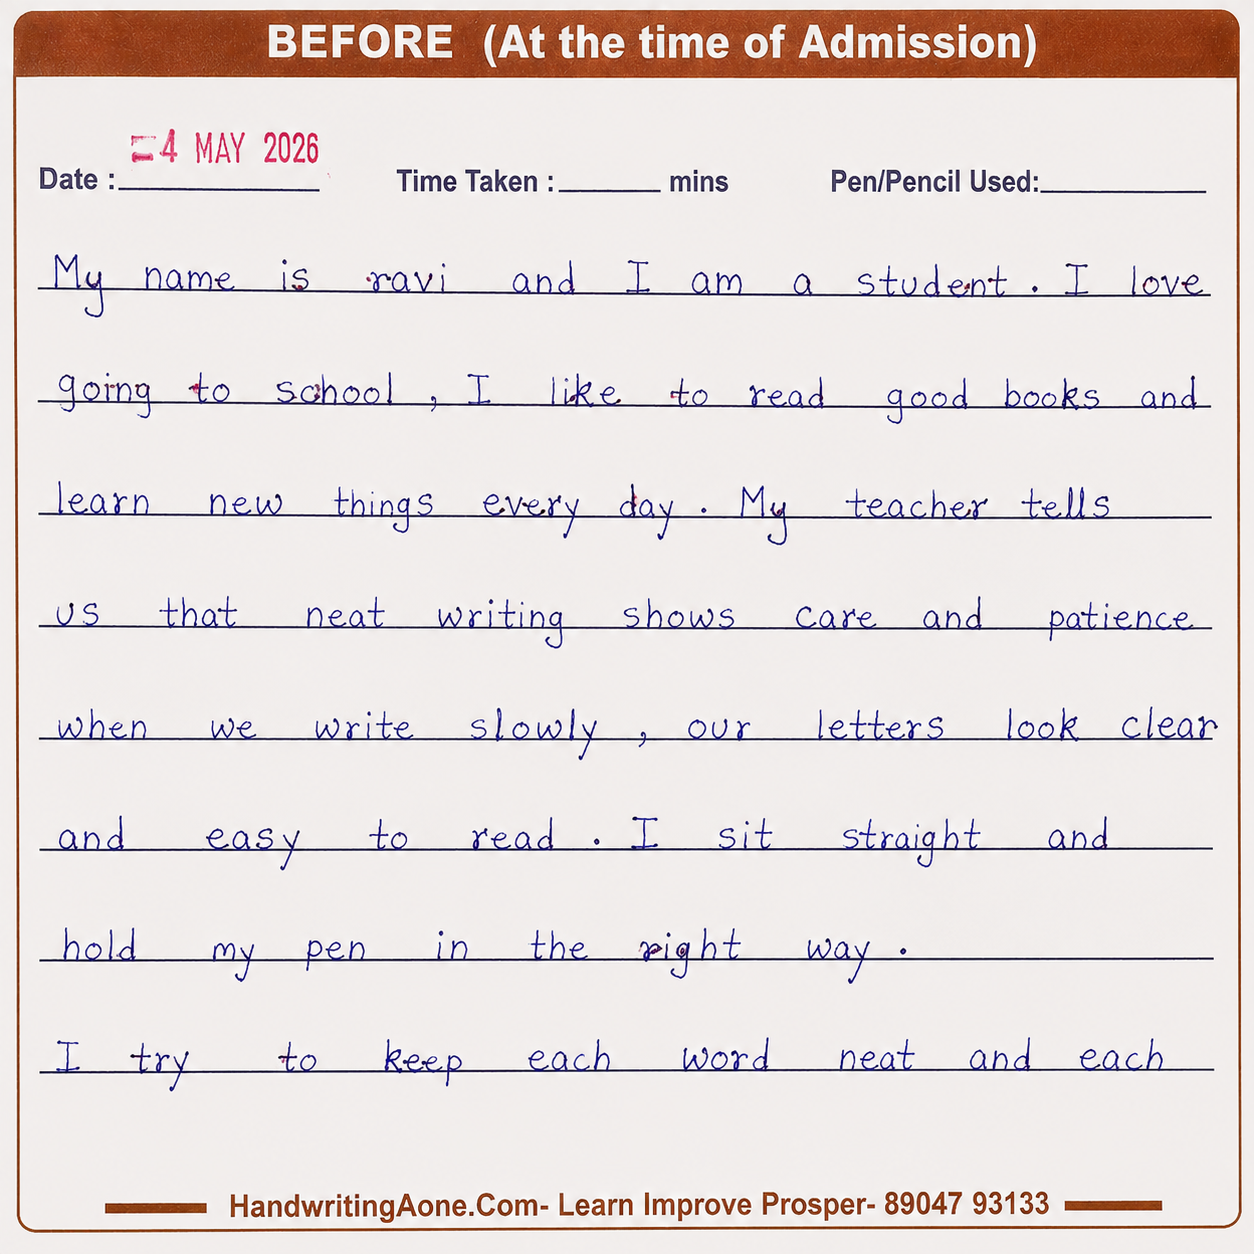 BEFORE (At the time of Admission)
4 MAY 2026
Date : Time Taken : mins Pen/Pencil Used:
My name is ravi and I am a student. I love
going to school, I like to read good books and
learn new things every day. My teacher tells
us that neat writing shows care and patience
when we write slowly, our letters look clear
and easy to read. I sit straight and
hold my pen in the right way.
I try to keep each word neat and each
HandwritingAone.Com- Learn Improve Prosper- 89047 93133